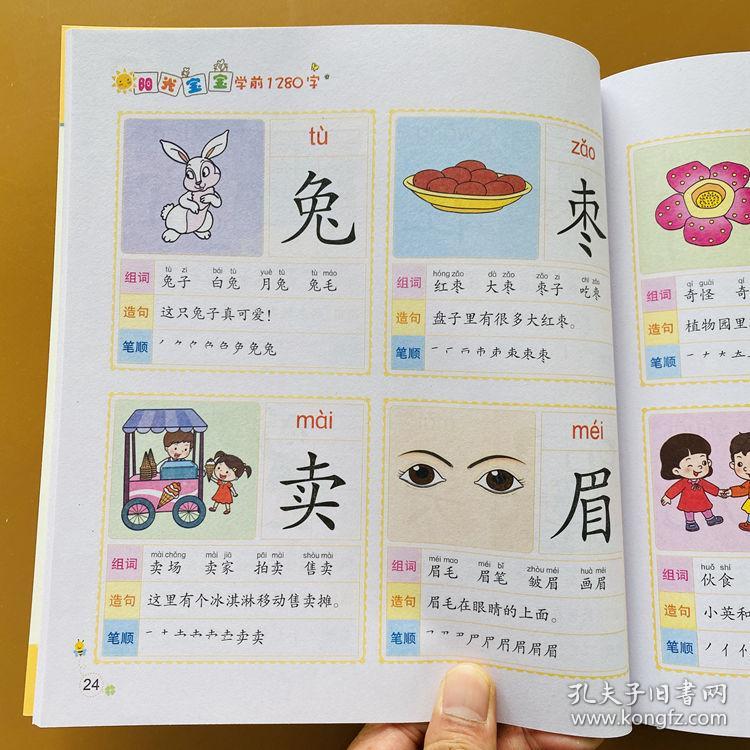 阳光宝宝学前1280字
tù
兔
组词
tù zi bái tù yuè tù tù máo
兔子 白兔 月兔 兔毛
造句
这只兔子真可爱！
笔顺
zǎo
枣
组词
hóng zǎo dà zǎo zǎo zi chī zǎo
红枣 大枣 枣子 吃枣
造句
盘子里有很多大红枣。
笔顺
mài
卖
组词
mài chǎng mài jiā pāi mài shòu mài
卖场 卖家 拍卖 售卖
造句
这里有个冰淇淋移动售卖摊。
笔顺
méi
眉
组词
méi mao méi bǐ zhòu méi huà méi
眉毛 眉笔 皱眉 画眉
造句
眉毛在眼睛的上面。
笔顺
24
组词
qí guài
奇怪 奇
造句
植物园里
笔顺
组词
huǒ shí
伙食
造句
小英和
笔顺
孔夫子旧书网
www.kongfz.com